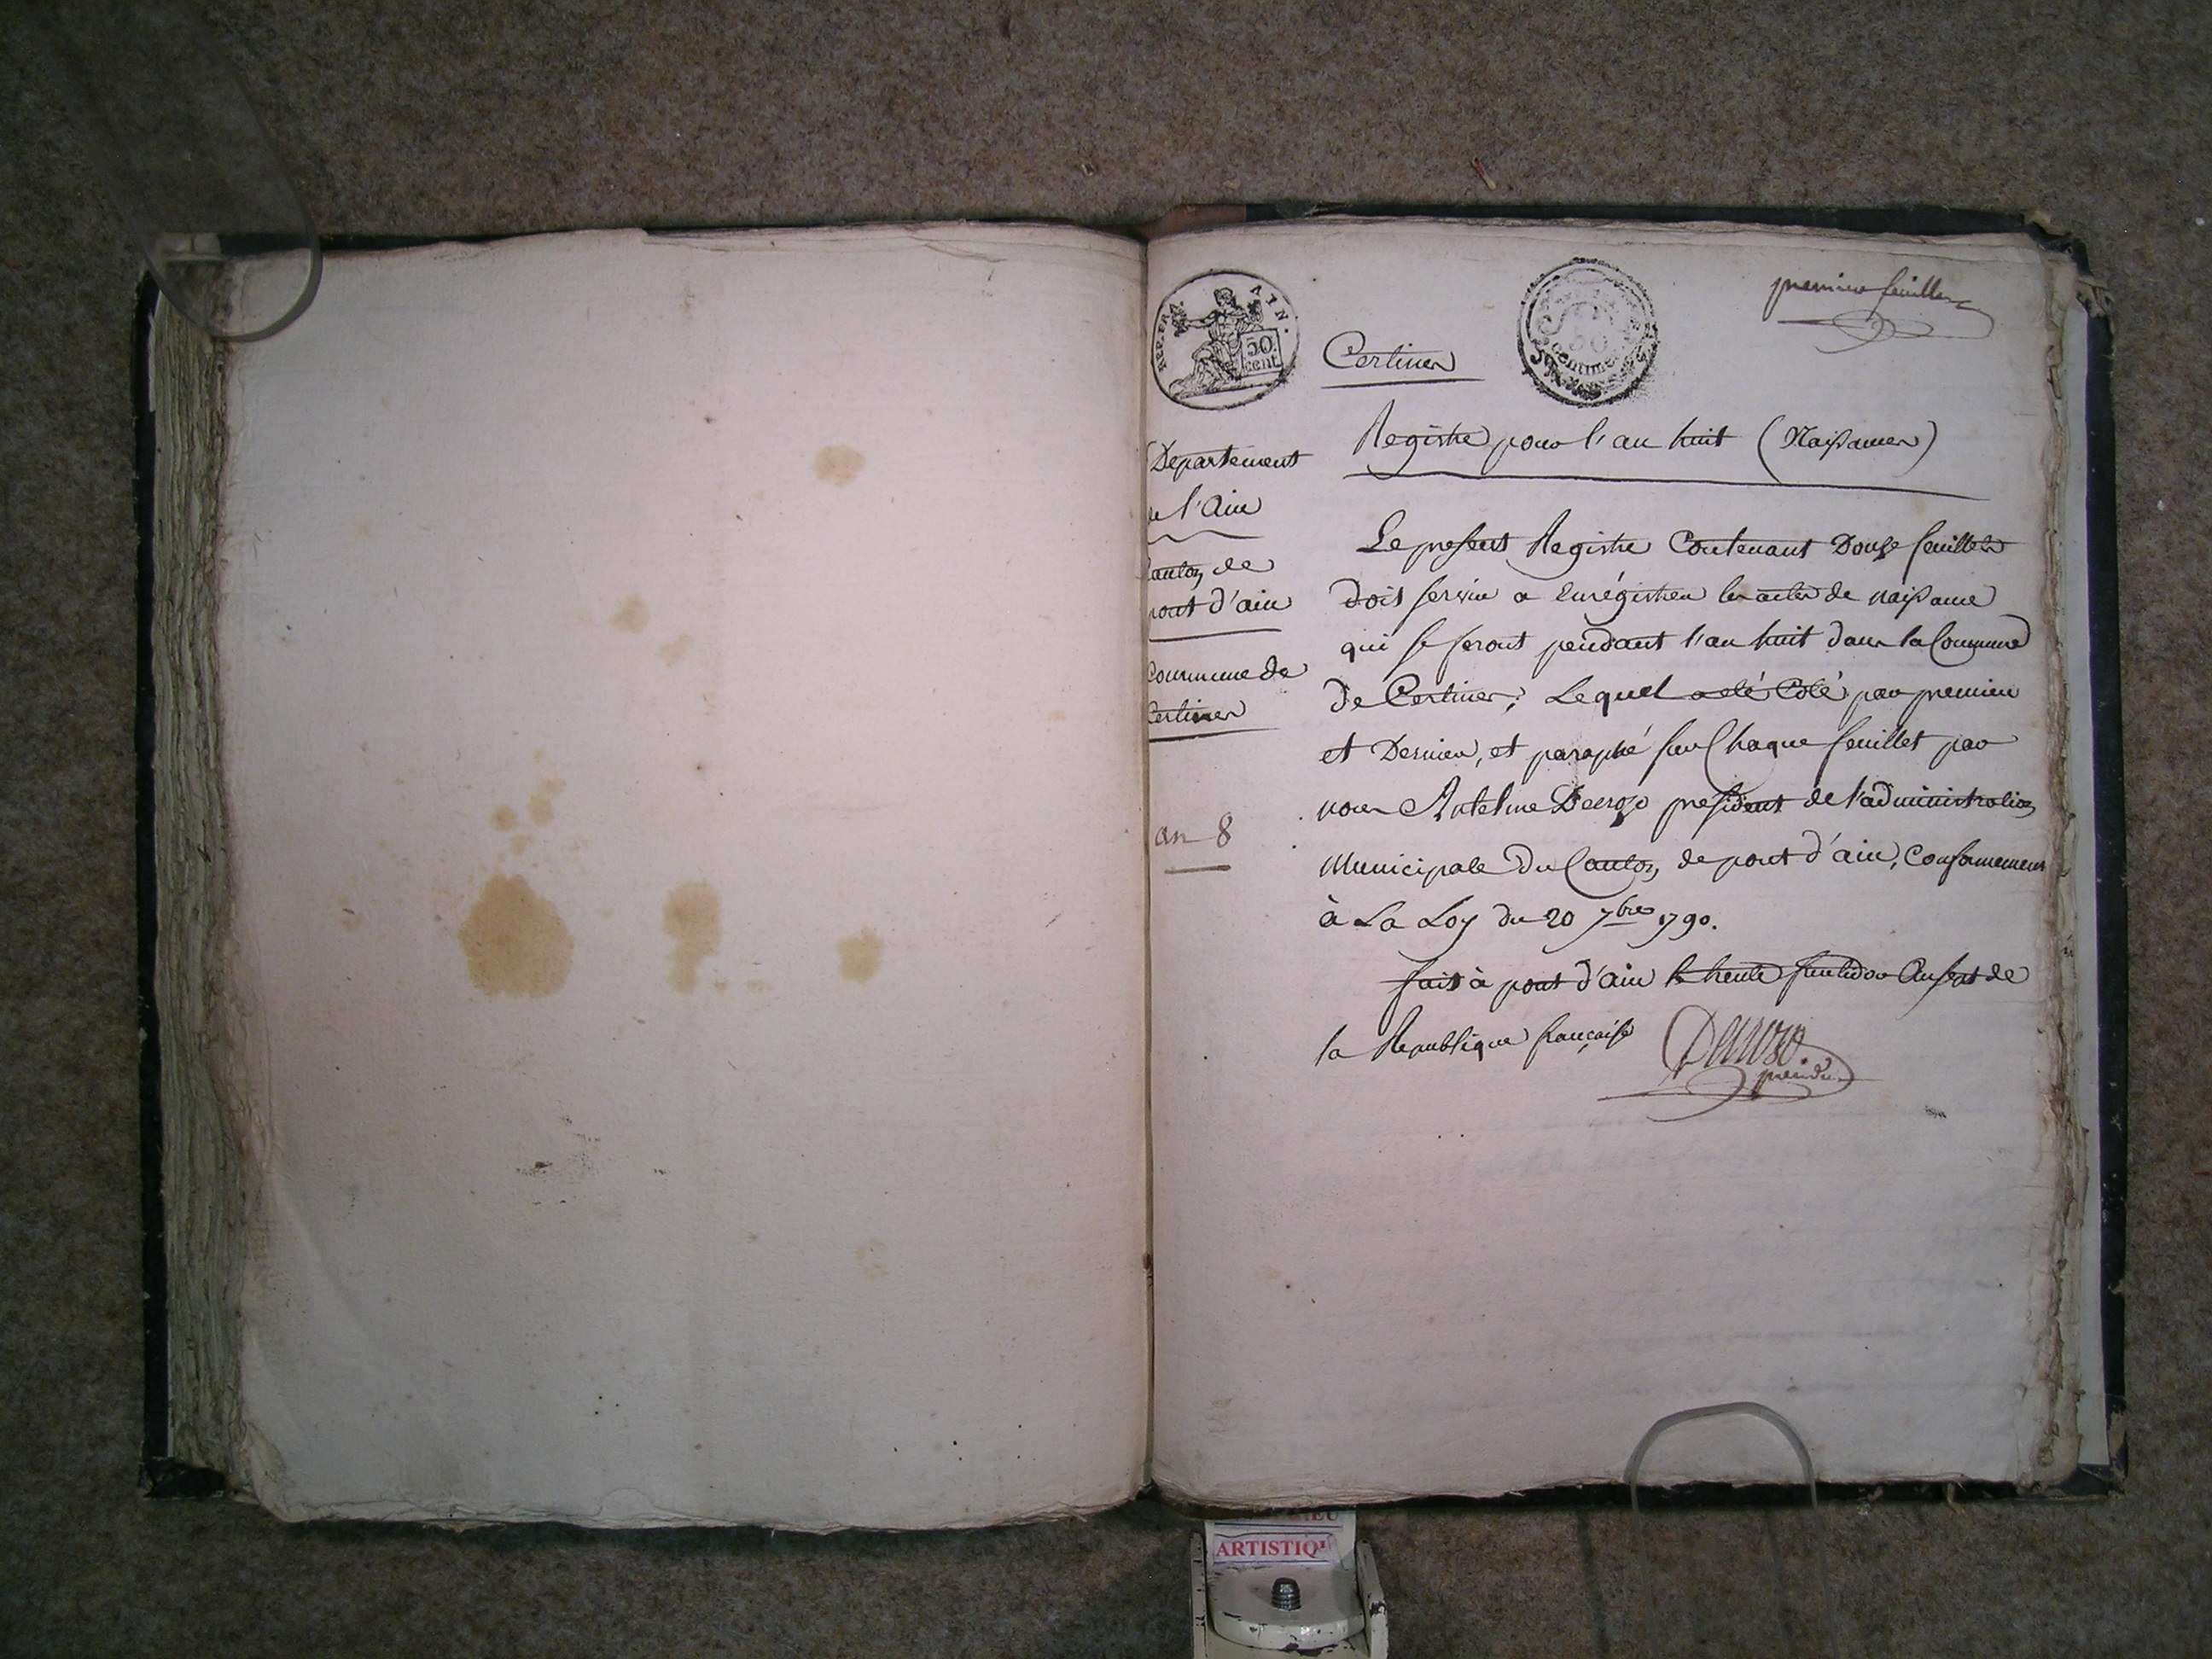 premier feuillet
REP. FRA. AIN.
50 cent.
Certines
Registre pour l'an huit (Naissances)
Departement
de l'Ain
Canton de
pont d'ain
Commune de
Certines
an 8
Le present Registre Contenant Douze feuillets
Doit servir a Enrégistrer les actes de naissance
qui se feront pendant l'an huit dans la Commune
De Certines; Lequel a eté Coté par premier
et Dernier, et paraphé sur Chaque feuillet par
nous Antelme president de l'administration
Municipale Du Canton de pont d'ain, Conformement
à La Loy du 20 7bre 1790.
fait à pont d'ain le trente fructidor An sept de
la Republique française
ARTISTIQ